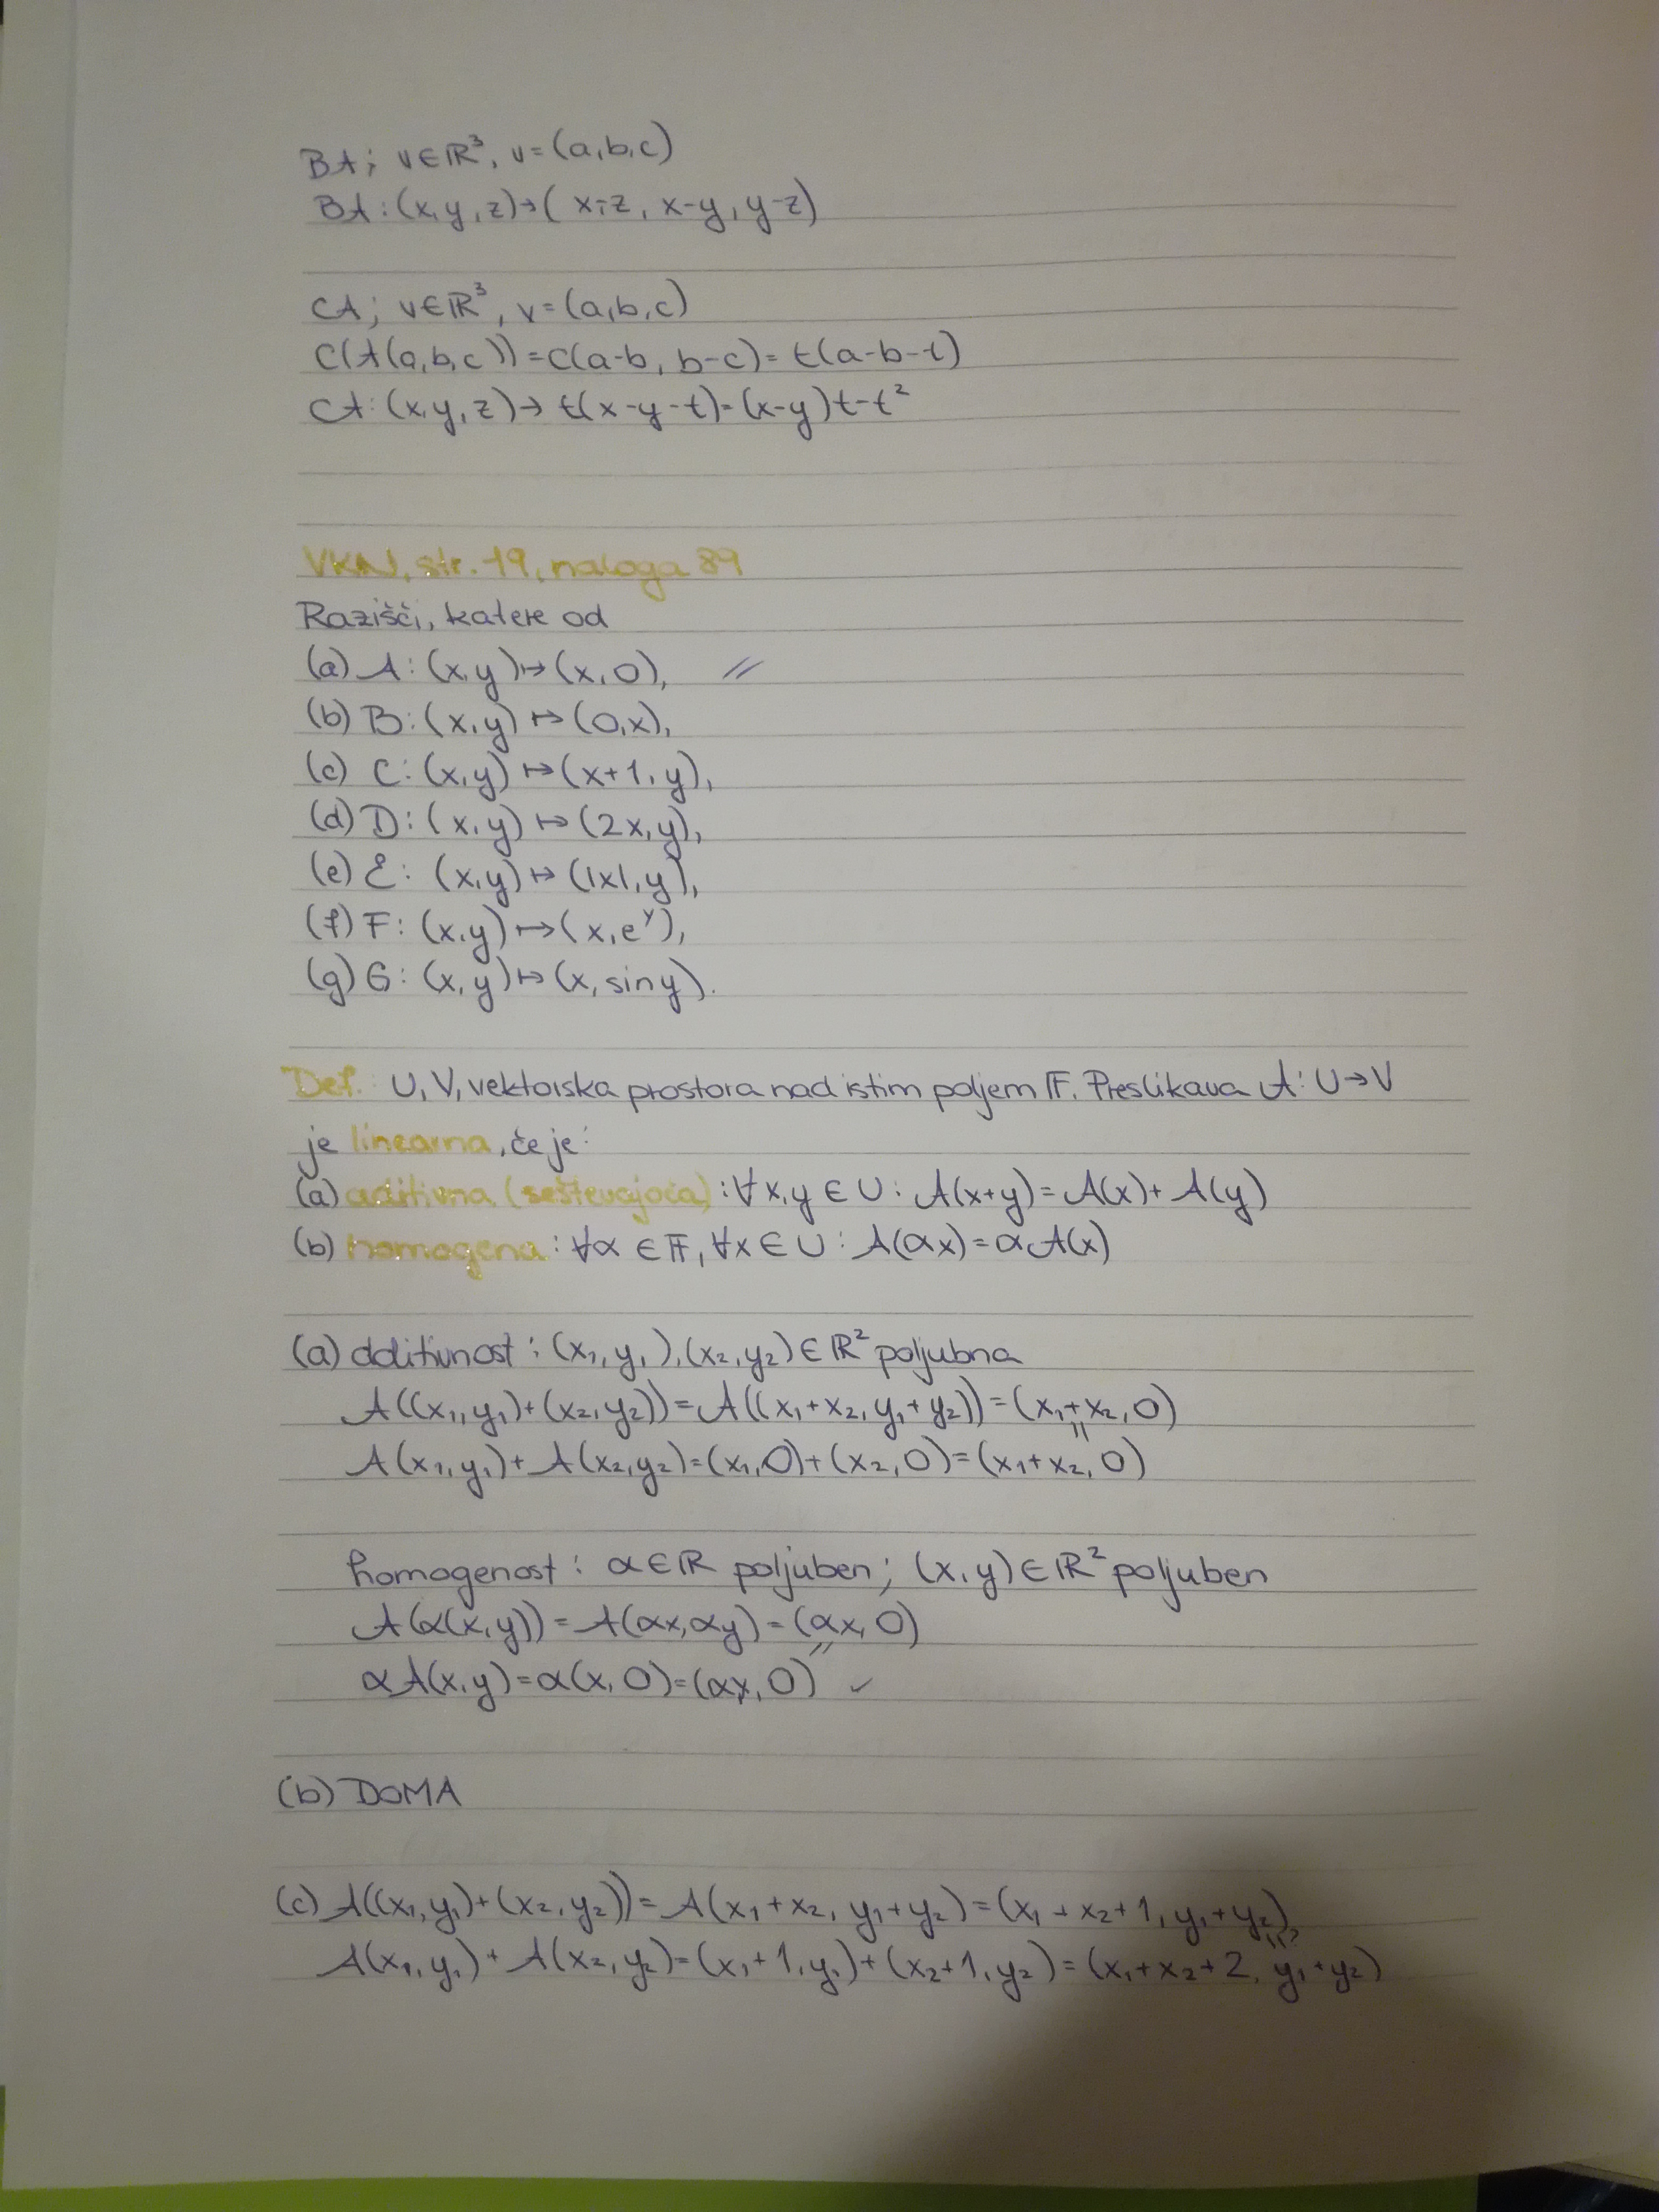 BA; v∈ℝ³, v=(a,b,c)
BA:(x,y,z)→( x-z, x-y, y-z)
CA; v∈ℝ³, v=(a,b,c)
C(A(a,b,c))=C(a-b, b-c)=t(a-b-t)
CA:(x,y,z)→ t(x-y-t)=(x-y)t-t²
VKN, str. 19, naloga 89
Razišči, katere od
(a) A:(x,y)↦(x,0), //
(b) B:(x,y)↦(0,x),
(c) C:(x,y)↦(x+1,y),
(d) D:(x,y)↦(2x,y),
(e) ℰ: (x,y)↦(|x|,y),
(f) F: (x,y)↦(x,eʸ),
(g) G: (x,y)↦(x, siny).
Def.: U, V, vektorska prostora nad istim poljem 𝔽. Preslikava A: U→V
je linearna, če je:
(a) aditivna (seštevajoča): ∀x,y ∈ U: A(x+y)=A(x)+A(y)
(b) homogena: ∀α ∈ 𝔽, ∀x ∈ U: A(αx)=αA(x)
(a) aditivnost: (x₁,y₁),(x₂,y₂)∈ℝ² poljubna
A((x₁,y₁)+(x₂,y₂))=A((x₁+x₂, y₁+y₂))=(x₁+x₂,0)
A(x₁,y₁)+A(x₂,y₂)=(x₁,0)+(x₂,0)=(x₁+x₂,0)
homogenost: α∈ℝ poljuben; (x,y)∈ℝ² poljuben
A(α(x,y))=A(αx,αy)=(αx,0)
αA(x,y)=α(x,0)=(αx,0) ✓
(b) DOMA
(c) A((x₁,y₁)+(x₂,y₂))=A(x₁+x₂, y₁+y₂)=(x₁+x₂+1, y₁+y₂)
A(x₁,y₁)+A(x₂,y₂)=(x₁+1,y₁)+(x₂+1,y₂)=(x₁+x₂+2, y₁+y₂)